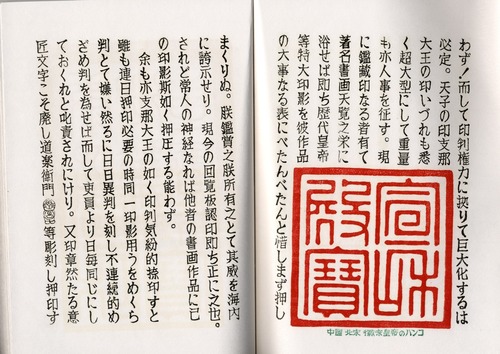 わず！而して印判権力に拠りて巨大化するは
必定。天子の印支那
大王の印いづれも悉
く超大型にして重量
も亦人事を征す。現
に鑑蔵印なる者有て
著名書画天覧之栄に
浴せば即ち歴代皇帝
等特大印影を彼作品
の大事なる表にべたんべたんと惜しまず押し
宣和
殿寶
中国 北宋 徽宗皇帝のハンコ
まくりぬ。朕鑑賞之朕所有之とて其威を海内
に誇示せり。現今の回覧板認印即ち正に之也。
されど常人の神経なれば他者の書画作品に己
の印影斯如く押圧する能わず。
余も亦支那大王の如く印判気紛的捺印すと
雖も連日押印必要の時同一印影用うをめくら
判とて嫌い然るに日日異判を刻し不連続的め
ざめ判を為せば而して吏員より日毎同じにし
ておくれと叱責されにけり。又印章然たる意
匠文字こそ廃し道楽衛門 等彫刻し押印す